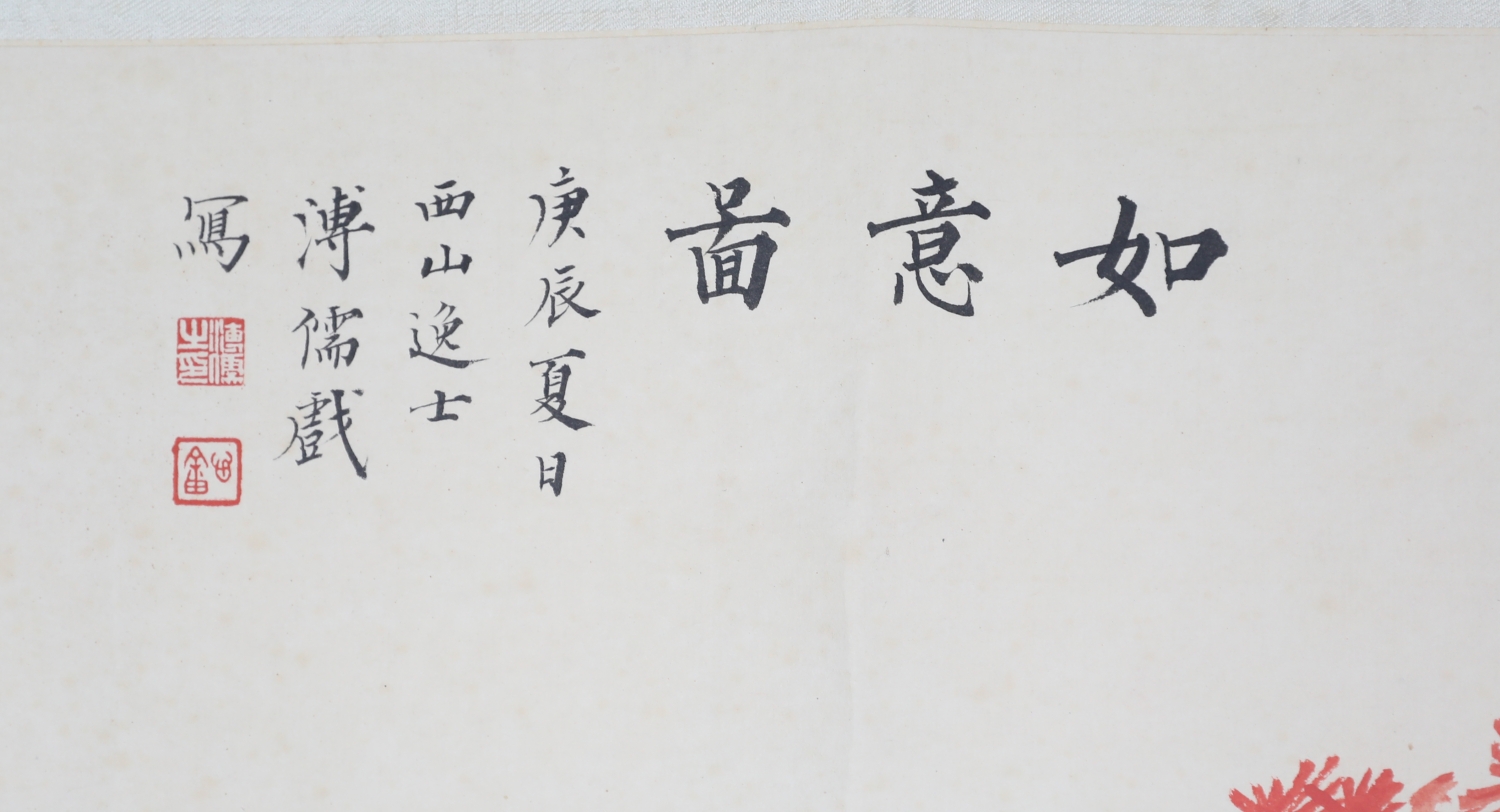 如意啚
庚辰夏日
西山逸士
溥儒戲
寫
溥儒之印